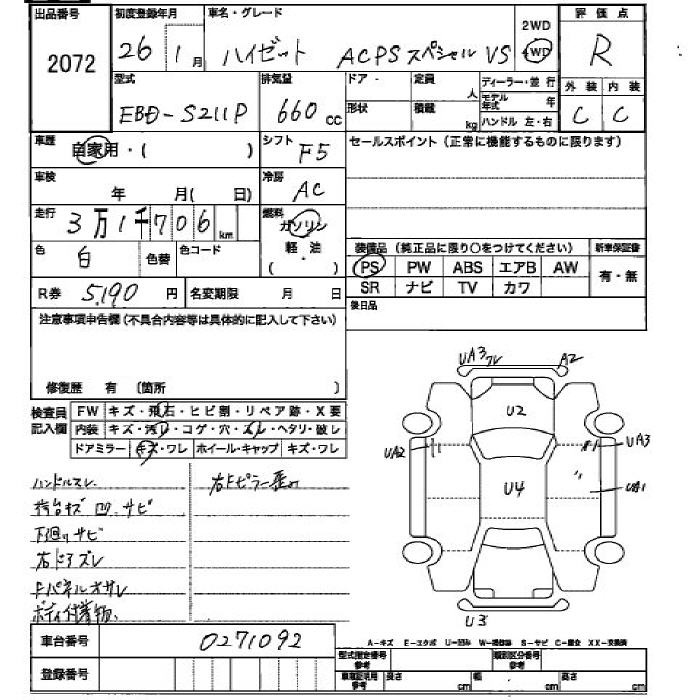 出品番号 初度登録年月 車名・グレード 2WD 評価点
2072 26 1月 ハイゼット ACPS スペシャル VS 4WD R
型式 排気量 ドア・ 定員 人 ディーラー・並行 外装 内装
EBD-S211P 660cc 形状 積載 kg モデル年式 年 C C
ハンドル 左・右
車歴 自家用・( ) シフト F5 セールスポイント(正常に機能するものに限ります)
車検 年 月( 日) 冷房 AC
走行 3万1千706km 燃料 ガソリン
軽・油
( )
色 白 色替 色コード
装備品(純正品に限り○をつけてください) 新車保証書
PS PW ABS エアB AW 有・無
SR ナビ TV カワ
R券 5,190円 名変期限 月 日 後日品
注意事項申告欄(不具合内容等は具体的に記入して下さい)
修復歴 有(箇所 )
検査員記入欄 FW キズ・飛石・ヒビ割・リペア跡・X要
内装 キズ・汚レ・コゲ・穴・スレ・ヘタリ・破レ
ドアミラー キズ・ワレ ホイール・キャップ キズ・ワレ
ハンドルスレ 右Fピラー
荷台キズ 凹 サビ
下廻りサビ
右ドアズレ
Fパネルオサレ
ボディ付着物
UA3ワレ A2
U2
UA2 UA3
U4 UA1
U3
車台番号 0271092
A-キズ E-エクボ U-凹ミ S-サビ C-腐食 XX-交換済
登録番号 型式指定番号 参考 類別区分番号 参考
車庫証明用 参考 長さ cm 幅 cm 高さ cm